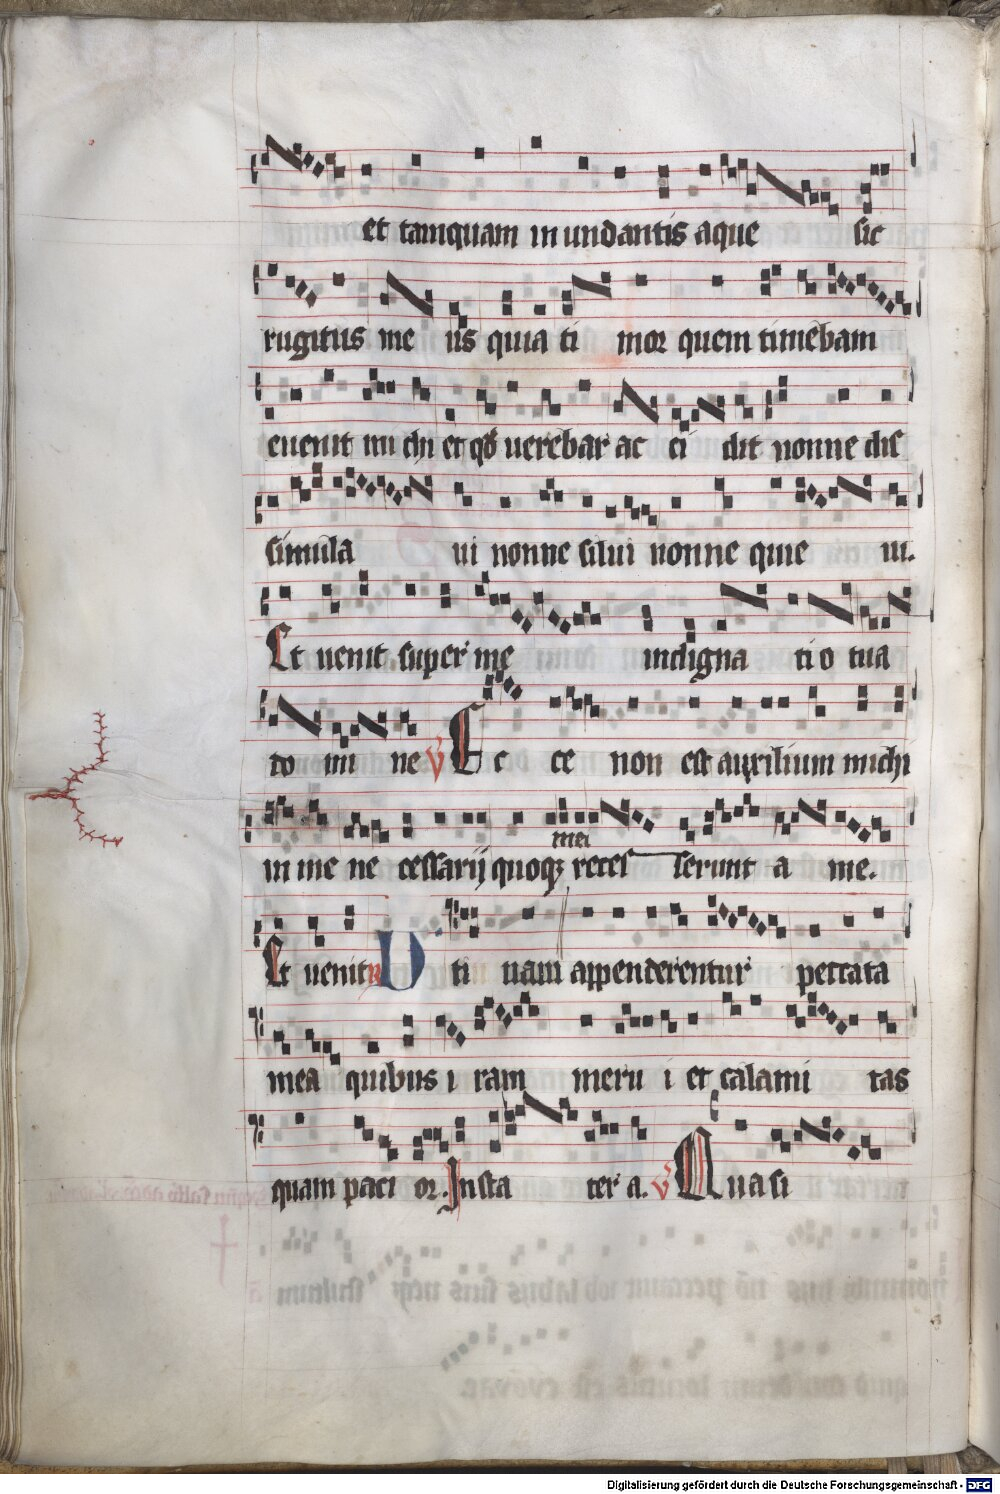 et tamquam inundantis aque sic
rugitus me us quia ti mor quem timebam
euenit mi chi et qd verebar ac ci dit nonne dis
simula ui nonne silui nonne quie ui.
Et uenit super me indigna tio tua
do mi ne V Ec ce non est auxilium michi
mei
in me ne cessarij quoqz reces serunt a me.
Et uenit R U ti nam appenderentur peccata
mea quibus i ram meru i et calami tas
quam paci or. Insta ter a. V Quasi
Digitalisierung gefördert durch die Deutsche Forschungsgemeinschaft - DFG